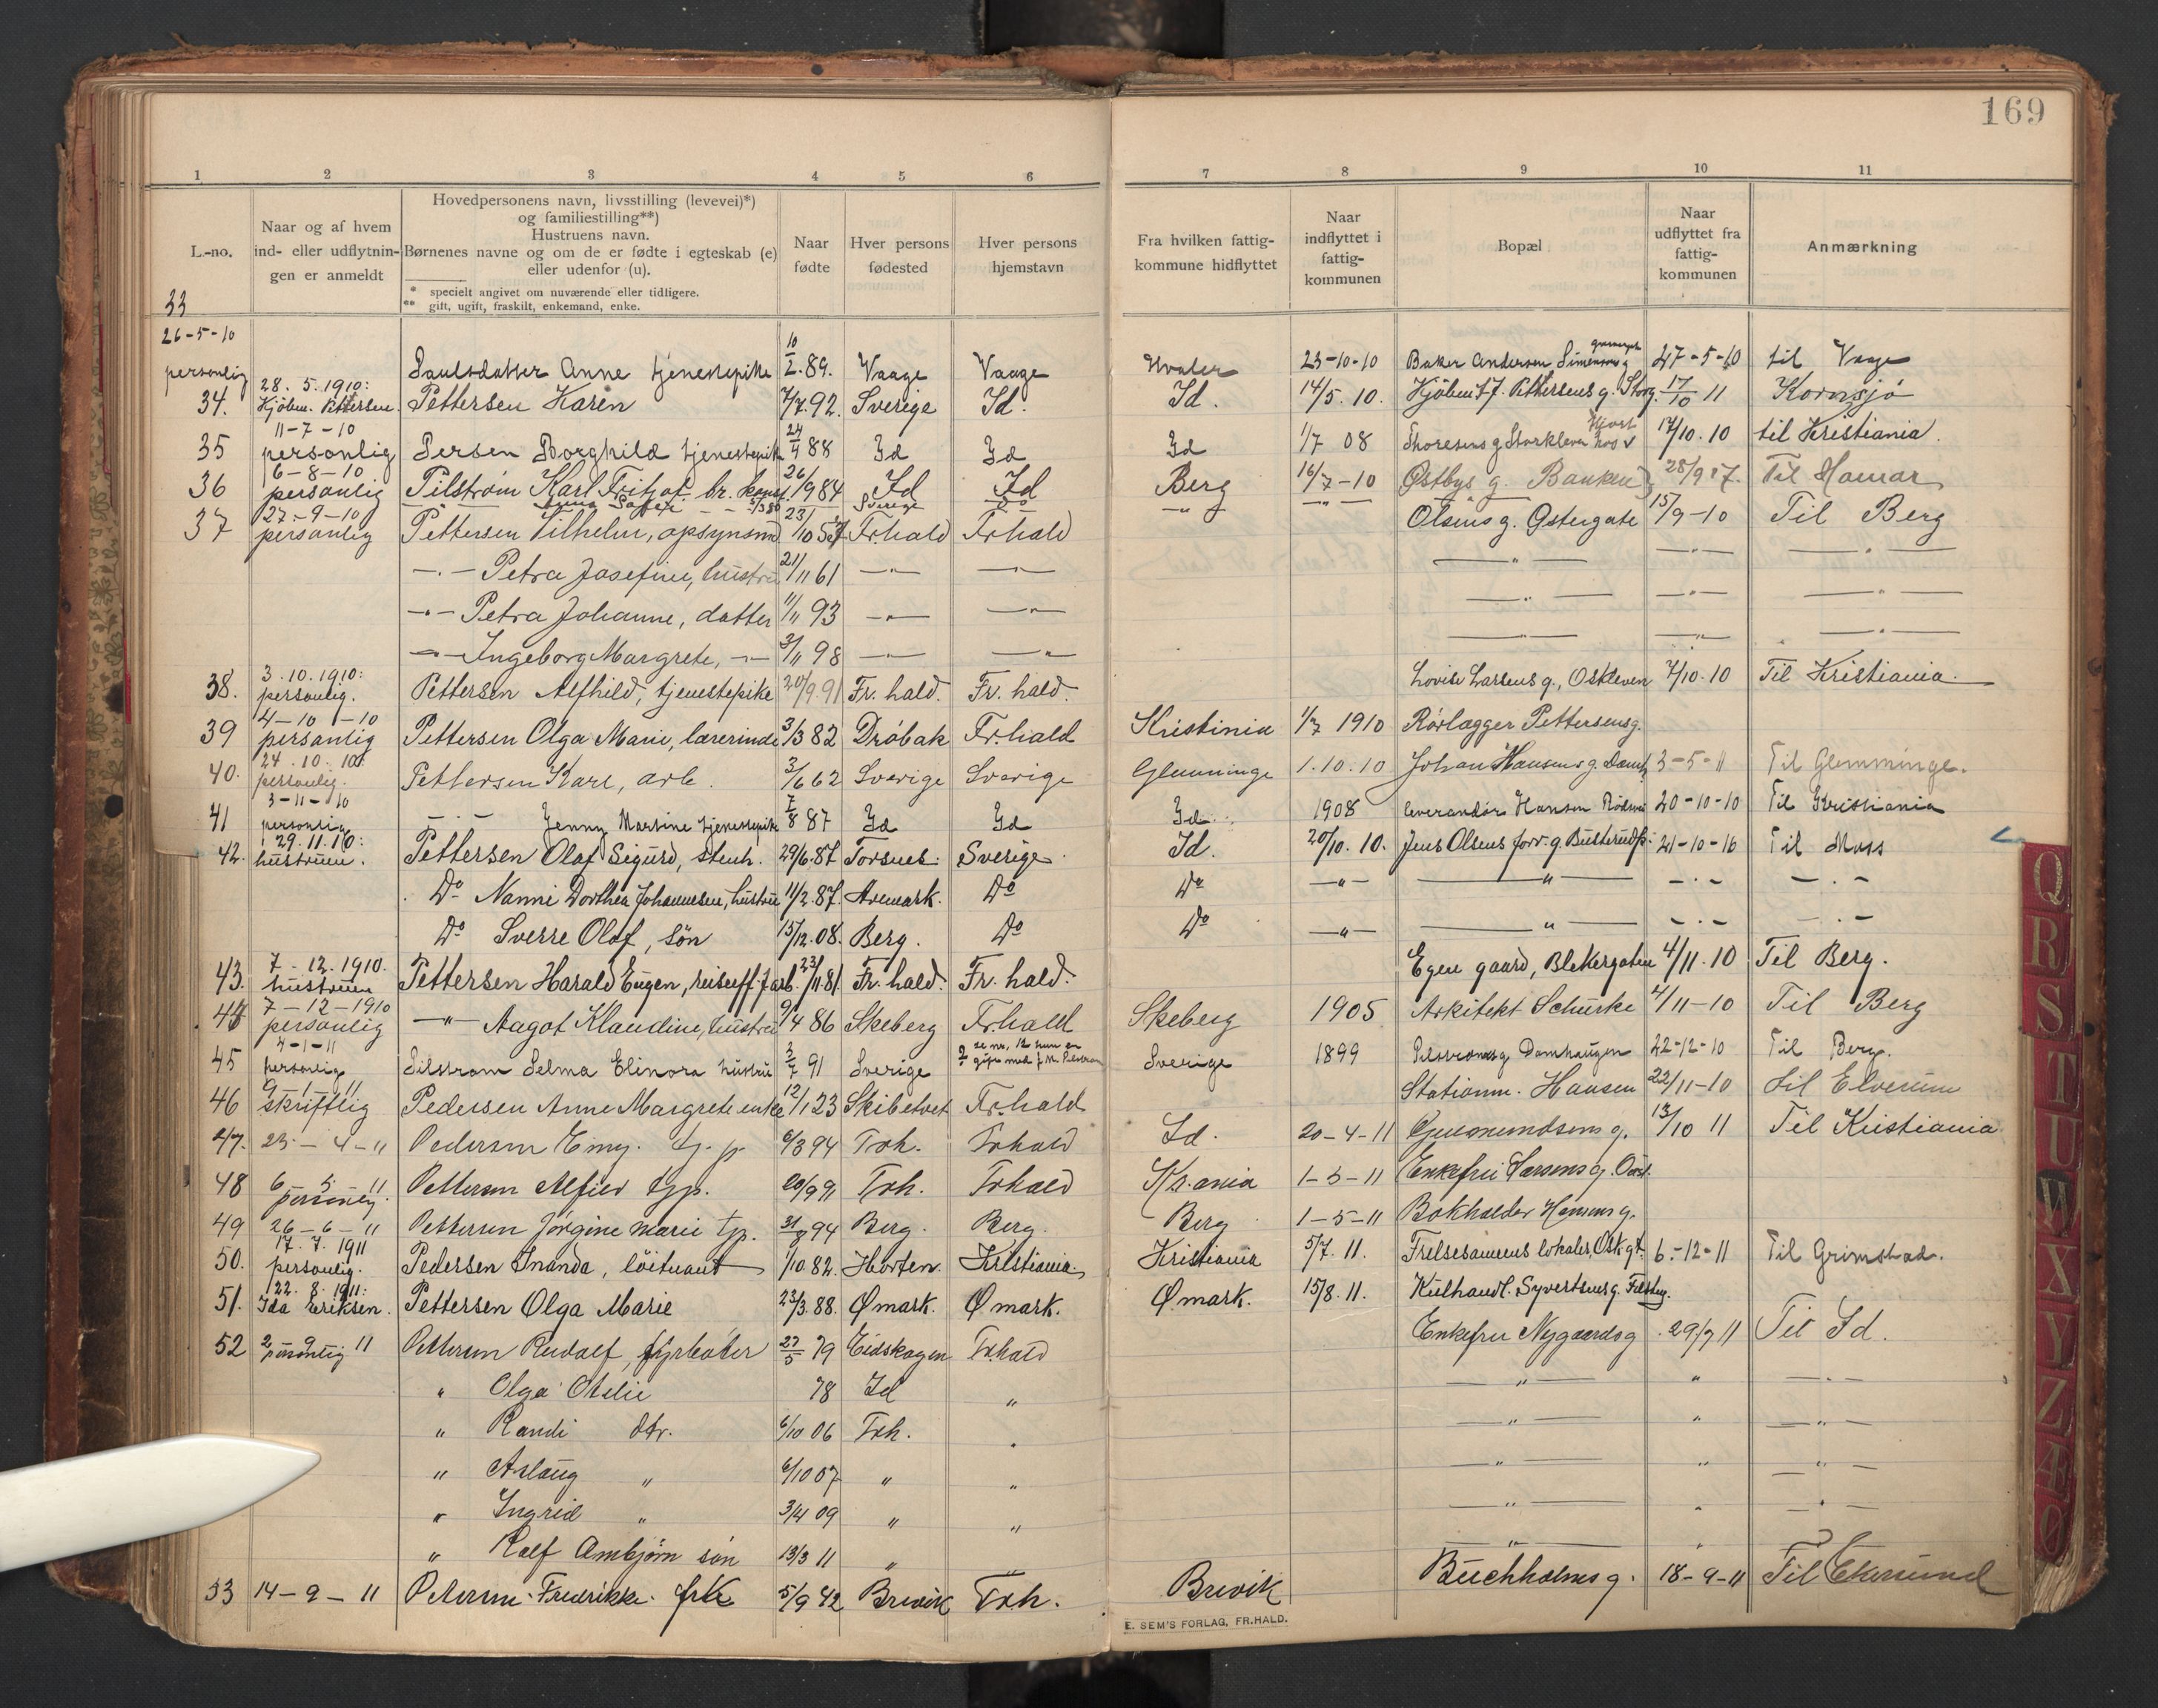 169
1 2 3 4 5 6 7 8 9 10 11
L.-no.
Naar og af hvem
ind- eller udflytnin-
gen er anmeldt
Hovedpersonens navn, livsstilling (levevei)*)
og familiestilling**)
Hustruens navn.
Børnenes navne og om de er fødte i egteskab (e)
eller udenfor (u).
* specielt angivet om nuværende eller tidligere.
** gift, ugift, fraskilt, enkemand, enke.
Naar
fødte
Hver persons
fødested
Hver persons
hjemstavn
Fra hvilken fattig-
kommune hidflyttet
Naar
indflyttet i
fattig-
kommunen
Bopæl
Naar
udflyttet fra
fattig-
kommunen
Anmærkning
33
26-5-10
personlig Paulsdatter Anne tjenestepike 10/2.89. Vaage Vaage Hvaler 23-10-10 Baker Andersen Simensens g 27-5-10 til Vaage
28.5.1910:
34. Kjøbm. Pettersen. Pettersen Karen 7/7.92. Sverige Id. Id. 14/5.10. Kjøbm J. Pettersens g. Storg. 17/10 11 Kornsjø
11-7-10
35 personlig Persen Borghild tjenestepike 24/4 88 Id Id Id 1/7 08 Thoresens g Storkleven hos 17/10.10 til Kristiania.
6-8-10
36 personlig Pilstrøm Karl Fritjof 26/9 84 Id Id Berg 16/7-10 Østbys g. Banken 28/9 17. Til Hamar
Sverige
27-9-10
37 personlig Pettersen Vilhelm, opsynsmd 23/10 57 Fr.hald Fr.hald Olsens g. Østergate 15/9-10 Til Berg
-"- Petra Josefine, hustru 21/11 61 -"- -"- -"- -"- -"-
-"- Petra Johanne, datter 11/11 93 -"- -"- -"- -"- -"-
-"- Ingeborg Margrete, -"- 3/11 98 -"- -"- -"- -"- -"-
3.10.1910:
38. personlig. Pettersen Alfhild, tjenestepike 20/9.91 Fr.hald. Fr.hald. Lovise Larsens g., Oskleven 7/10.10 Til Kristiania.
4-10-10
39 personlig Pettersen Olga Marie, lærerinde 3/3 82 Drøbak Fr.hald Kristinia 1/7 1910 Rørlægger Pettersens g.
24.10.10:
40. personlig. Pettersen Karl, arb. 3/6 62 Sverige Sverige Glemminge 1.10.10 Johan Hansens g. Damh 3-5-11 Til Glemminge.
3-11-10
41 personlig -"- Jenny Martine tjenestepike 7/8 87 Id Id Id 1908 leverandør Hansen 20-10-10 Til Kristiania
29.11.10:
42. hustruen. Pettersen Olaf Sigurd, stenh. 29/6.87 Torsnes Sverige. Id. 20/10.10. Jens Olsens forr. g. 21-10-16 Til Moss
Do Nanni Dorthea Johannesen, hustru 11/2.87. Aremark. Do Do -"- -"- -"- -"-
Do Sverre Olaf, søn 15/12.08. Berg. Do Do -"- -"- -"- -"-
7-12.1910.
43. hustruen Pettersen Harald Eugen, 23/11.81 Fr.hald. Fr.hald. Egen gaard, Blekergaten 4/11.10 Til Berg.
7-12-1910
44 personlig -"- Aagot Klaudine, hustru 9/4 86 Skeberg Fr.hald Skeberg 1905 Arkitekt Schurke 4/11-10 Til Berg
4-1-11
45 personlig Pilstrøm Selma Elinora hustru 2/7 91 Sverige Sverige 1899 Pilstrøms g Damhaugen 22-12-10 Til Berg.
9-1-11
46 skriftlig Pedersen Anne Margrete enke 12/1 23 Skibtvet Fr.hald Stationm. Hansen 22/11-10 til Elverum
47. 23-4-11 Pedersen Emy. t.p. 6/3 94 Frh. Frhald Id. 20-4-11 Gudmundsens g. 13/10 11 Til Kristiania
48 6-5-11 personlig. Pettersen Alfild tjp. 20/9 91 Frh. Frhald Kr.ania 1-5-11 Enkefru Larsens g.
49 26-6-11 Pettersen Jørgine Marie tp. 31/8 94 Berg. Berg. Berg 1-5-11 Bokholder Hansens g.
17.7.1911
50. personlig. Pedersen Inanda, løitnant 1/10.82. Horten. Kristiania. Kristiania 5/7.11. Frelsesarmeens lokaler, Osk.gt. 6.-12-11 Til Grimstad.
22.8.1911:
51. Ida Eriksen. Pettersen Olga Marie 23/3.88. Ømark. Ømark. Ømark. 15/8.11. Kulhandl. Syvertsens g.
52 2-9-11 personlig Pettersen Rudolf, fyrbøter 27/5 79 Eidskogen Frhald Enkefru Nygaards g. 29/7 11 Til Id.
" Olga Otelie 78 Id " -"- " -"-
" Randi dtr. 6/10 06 Frh. " -"- " -"-
" Aslaug " 6/10 07 " " -"- " -"-
" Ingrid " 3/4 09 " " -"- " -"-
" Ralf Ambjørn søn 13/3 11 " " "
53 14-9-11 Petersen Fredrikke. frk 5/9 42 Brevik Frh. Brevik Buchholms g. 18-9-11 Til Ekersund
E. SEM'S FORLAG, FR.HALD.
Q
R
S
T
U
W
X
Y
Z
Æ
Ø